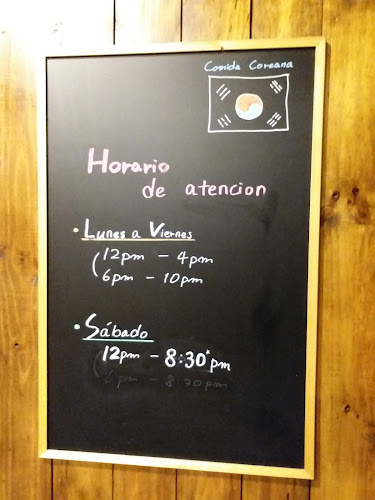 Comida Coreana
Horario
de atencion
• Lunes a Viernes
12pm - 4pm
6pm - 10pm
• Sábado
12pm - 8:30pm
6pm - 8:30pm